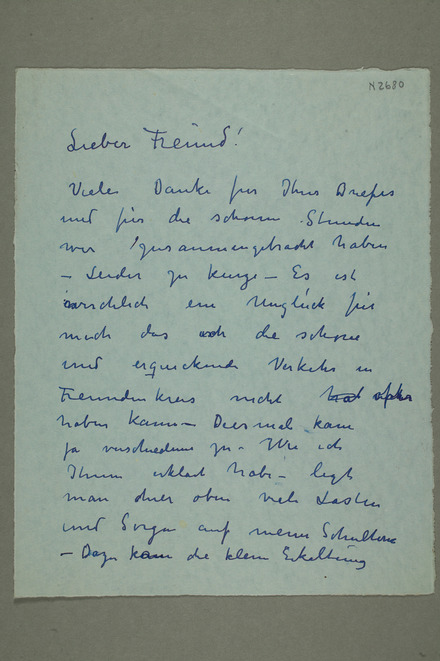 N2680
Lieber Freund!
Vielen Danke fur Ihre Briefes
und für die schonen Stunden
wir zusammengebracht haben
- Leider zu kurze - Es ist
wirchlich ein Unglück für
mich das ich die schone
und erquickende Verkehr in
Freundenkreis nicht öfter
haben kann - Diesmal kam
ja verschiedene zu - Wie ich
Ihnen erklart habe - legt
man hier oben viele Lasten
und Sorgen auf meine Schultern
- Dazu kam die kleine Erkaltung